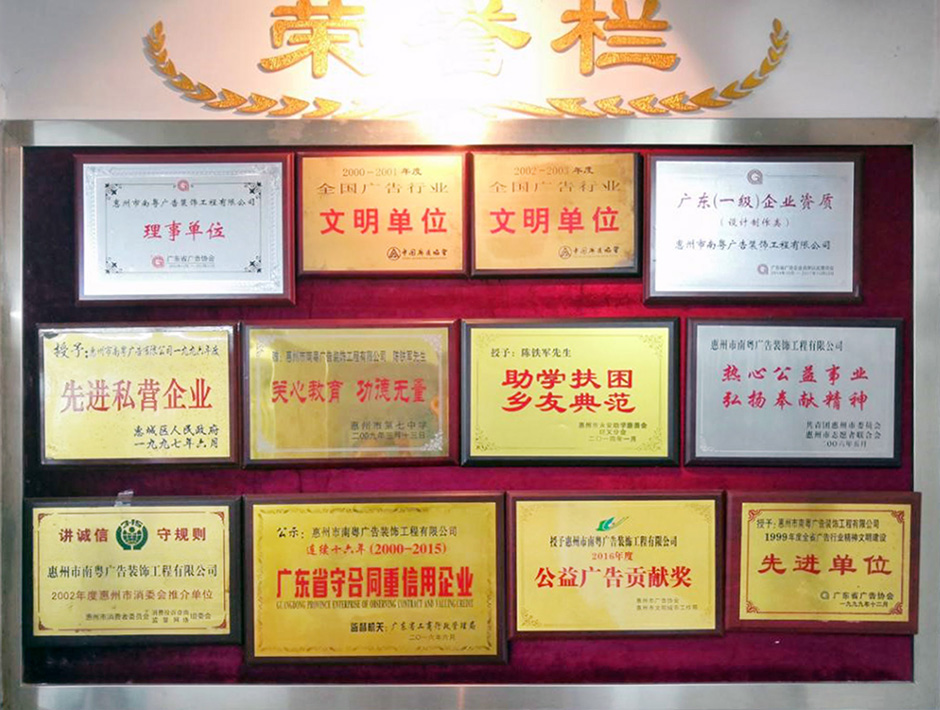 荣誉栏
惠州市南粤广告装饰工程有限公司
理事单位
广东省广告协会
2000-2001年度
全国广告行业
文明单位
中国广告协会
2002-2003年度
全国广告行业
文明单位
中国广告协会
广东(一级)企业资质
(设计制作类)
惠州市南粤广告装饰工程有限公司
授予:惠州市南粤广告有限公司一九九六年度
先进私营企业
惠城区人民政府
一九九七年六月
惠州市南粤广告装饰工程有限公司 陈铁军先生
关心教育 功德无量
惠州市第七中学
二00九年三月十三日
授予:陈铁军先生
助学扶困
乡友典范
二0一四年一月
惠州市南粤广告装饰工程有限公司
热心公益事业
弘扬奉献精神
共青团惠州市委员会
惠州市志愿者联合会
00六年五月
讲诚信 守规则
惠州市南粤广告装饰工程有限公司
2002年度惠州市消委会推介单位
惠州市消费者委员会
公示:惠州市南粤广告装饰工程有限公司
连续十六年(2000-2015)
广东省守合同重信用企业
GUANGDONG PROVINCE ENTERPRISE OF OBSERVING CONTRACT AND VALUING CREDIT
监督机关:广东省工商行政管理局
二0一六年六月
授予惠州市南粤广告装饰工程有限公司
2016年度
公益广告贡献奖
惠州市广告协会
授予:惠州市南粤广告装饰工程有限公司
1999年度全省广告行业精神文明建设
先进单位
广东省广告协会
一九九九年十二月